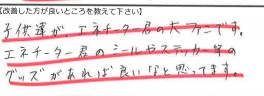 【改善した方が良いところを教えて下さい】
子供達が、エネチーター君の大ファンです。
エネチーター君のシールやステッカー等の
グッズがあれば良いなと思ってます。